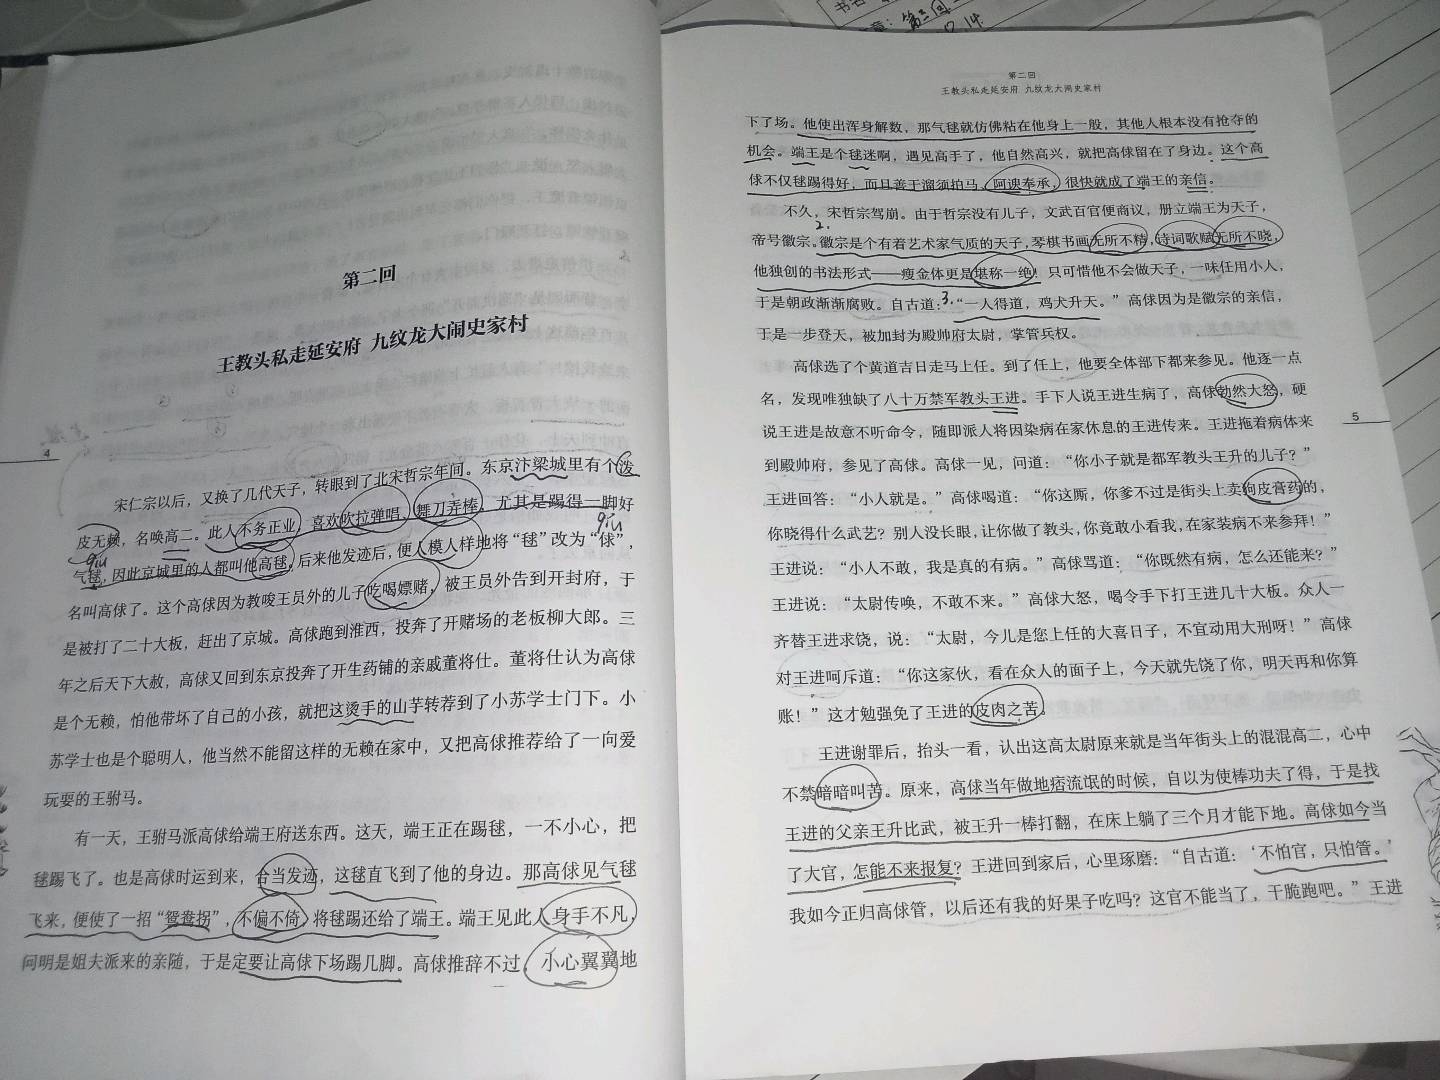 第二回
王教头私走延安府 九纹龙大闹史家村
4
宋仁宗以后，又换了几代天子，转眼到了北宋哲宗年间。东京汴梁城里有个泼
皮无赖，名唤高二。此人不务正业，喜欢吹拉弹唱、舞刀弄棒，尤其是踢得一脚好
qiu
qiu
气毬，因此京城里的人都叫他高毬。后来他发迹后，便人模人样地将“毬”改为“俅”，
名叫高俅了。这个高俅因为教唆王员外的儿子吃喝嫖赌，被王员外告到开封府，于
是被打了二十大板，赶出了京城。高俅跑到淮西，投奔了开赌场的老板柳大郎。三
年之后天下大赦，高俅又回到东京投奔了开生药铺的亲戚董将仕。董将仕认为高俅
是个无赖，怕他带坏了自己的小孩，就把这烫手的山芋转荐到了小苏学士门下。小
苏学士也是个聪明人，他当然不能留这样的无赖在家中，又把高俅推荐给了一向爱
玩耍的王驸马。
有一天，王驸马派高俅给端王府送东西。这天，端王正在踢毬，一不小心，把
毬踢飞了。也是高俅时运到来，合当发迹，这毬直飞到了他的身边。那高俅见气毬
飞来，便使了一招“鸳鸯拐”，不偏不倚，将毬踢还给了端王。端王见此人身手不凡，
问明是姐夫派来的亲随，于是定要让高俅下场踢几脚。高俅推辞不过，小心翼翼地
第三回
14
第二回
王教头私走延安府 九纹龙大闹史家村
下了场。他使出浑身解数，那气毬就仿佛粘在他身上一般，其他人根本没有抢夺的
机会。端王是个毬迷啊，遇见高手了，他自然高兴，就把高俅留在了身边。这个高
俅不仅毬踢得好，而且善于溜须拍马、阿谀奉承，很快就成了端王的亲信。
不久，宋哲宗驾崩。由于哲宗没有儿子，文武百官便商议，册立端王为天子，
2.
帝号徽宗。徽宗是个有着艺术家气质的天子，琴棋书画无所不精，诗词歌赋无所不晓，
他独创的书法形式——瘦金体更是堪称一绝！只可惜他不会做天子，一味任用小人，
于是朝政渐渐腐败。自古道：3.“一人得道，鸡犬升天。”高俅因为是徽宗的亲信，
于是一步登天，被加封为殿帅府太尉，掌管兵权。
高俅选了个黄道吉日走马上任。到了任上，他要全体部下都来参见。他逐一点
名，发现唯独缺了八十万禁军教头王进。手下人说王进生病了，高俅勃然大怒，硬
说王进是故意不听命令，随即派人将因染病在家休息的王进传来。王进拖着病体来
到殿帅府，参见了高俅。高俅一见，问道：“你小子就是都军教头王升的儿子？”
王进回答：“小人就是。”高俅喝道：“你这厮，你爹不过是街头上卖狗皮膏药的，
你晓得什么武艺？别人没长眼，让你做了教头，你竟敢小看我，在家装病不来参拜！”
王进说：“小人不敢，我是真的有病。”高俅骂道：“你既然有病，怎么还能来？”
王进说：“太尉传唤，不敢不来。”高俅大怒，喝令手下打王进几十大板。众人一
齐替王进求饶，说：“太尉，今儿是您上任的大喜日子，不宜动用大刑呀！”高俅
对王进呵斥道：“你这家伙，看在众人的面子上，今天就先饶了你，明天再和你算
账！”这才勉强免了王进的皮肉之苦。
王进谢罪后，抬头一看，认出这高太尉原来就是当年街头上的混混高二，心中
不禁暗暗叫苦。原来，高俅当年做地痞流氓的时候，自以为使棒功夫了得，于是找
王进的父亲王升比武，被王升一棒打翻，在床上躺了三个月才能下地。高俅如今当
了大官，怎能不来报复？王进回到家后，心里琢磨：“自古道：‘不怕官，只怕管。’
我如今正归高俅管，以后还有我的好果子吃吗？这官不能当了，干脆跑吧。”王进
5